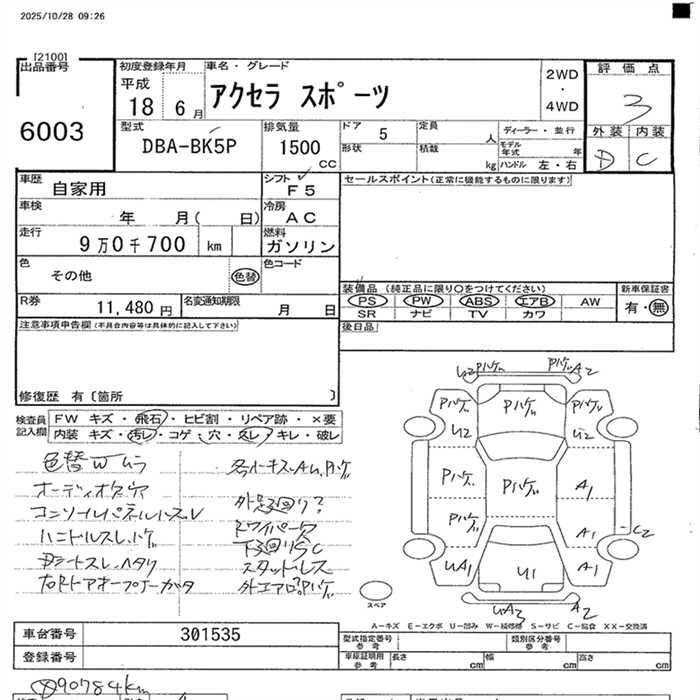 2025/10/28 09:26
[2100]
出品番号
6003
初度登録年月
平成
18 6月
車名・グレード
アクセラ スポーツ
2WD
・
4WD
評価点
3
外装 内装
D C
型式
DBA-BK5P
排気量
1500
CC
ドア 5
形状
定員 人
積載 kg
ディーラー・並行
モデル年式 年
ハンドル 左・右
車歴
自家用
シフト
F5
セールスポイント(正常に機能するものに限ります)
車検
年 月( 日)
冷房
AC
走行
9万0千700 km
燃料
ガソリン
色
その他
色替
色コード
装備品(純正品に限り○をつけてください)
PS PW ABS エアB AW
SR ナビ TV カワ
新車保証書
有・無
R券
11,480円
名変通知期限
月 日
後日品
注意事項申告欄(不具合内容等は具体的に記入して下さい)
修復歴 有〔箇所 〕
検査員
記入欄
FW キズ・飛石・ヒビ割・リペア跡・×要
内装 キズ・汚レ・コゲ・穴・スレ・キレ・破レ
色替Wムラ
オーディオ欠品
コンソールパネルハズレ
ハンドルスレ、ハゲ
外足廻り?
Rワイパー欠
下廻りSC
スタッドレス
U2 Pハゲ
Pハゲ A2
Pハゲ
Pハゲ
Pハゲ
U2
U2
Pハゲ
Pハゲ
A1
Pハゲ
A1
C2
UA1
U1
A1
UA3
A2
スペア
A－キズ E－エクボ U－凹み W－補修跡 S－サビ C－腐食 XX－交換済
車台番号
301535
登録番号
型式指定番号
参考
類別区分番号
参考
車庫証明用
参考
長さ cm
幅 cm
高さ cm
90784km